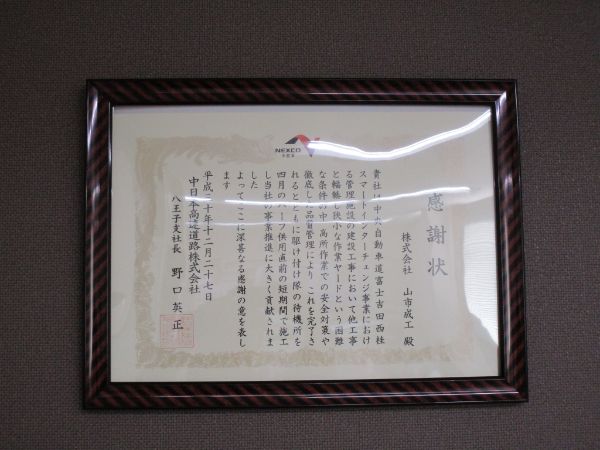 NEXCO
感謝状
株式会社 山市成工 殿
貴社は中央自動車道富士吉田西桂
スマートインターチェンジ事業におけ
る管理施設の建設工事において他工事
と輻輳し狭小な作業ヤードという困難
な条件の中 高所作業での安全対策や
徹底した品質管理により これを完了さ
れるとともに駆け付け隊の待機所を
四月のハーフ供用直前の短期間で施工
し当社の事業推進に大きく貢献されま
した
よってここに深甚なる感謝の意を表し
ます
平成三十年十二月二十七日
中日本高速道路株式会社
八王子支社長 野口英正